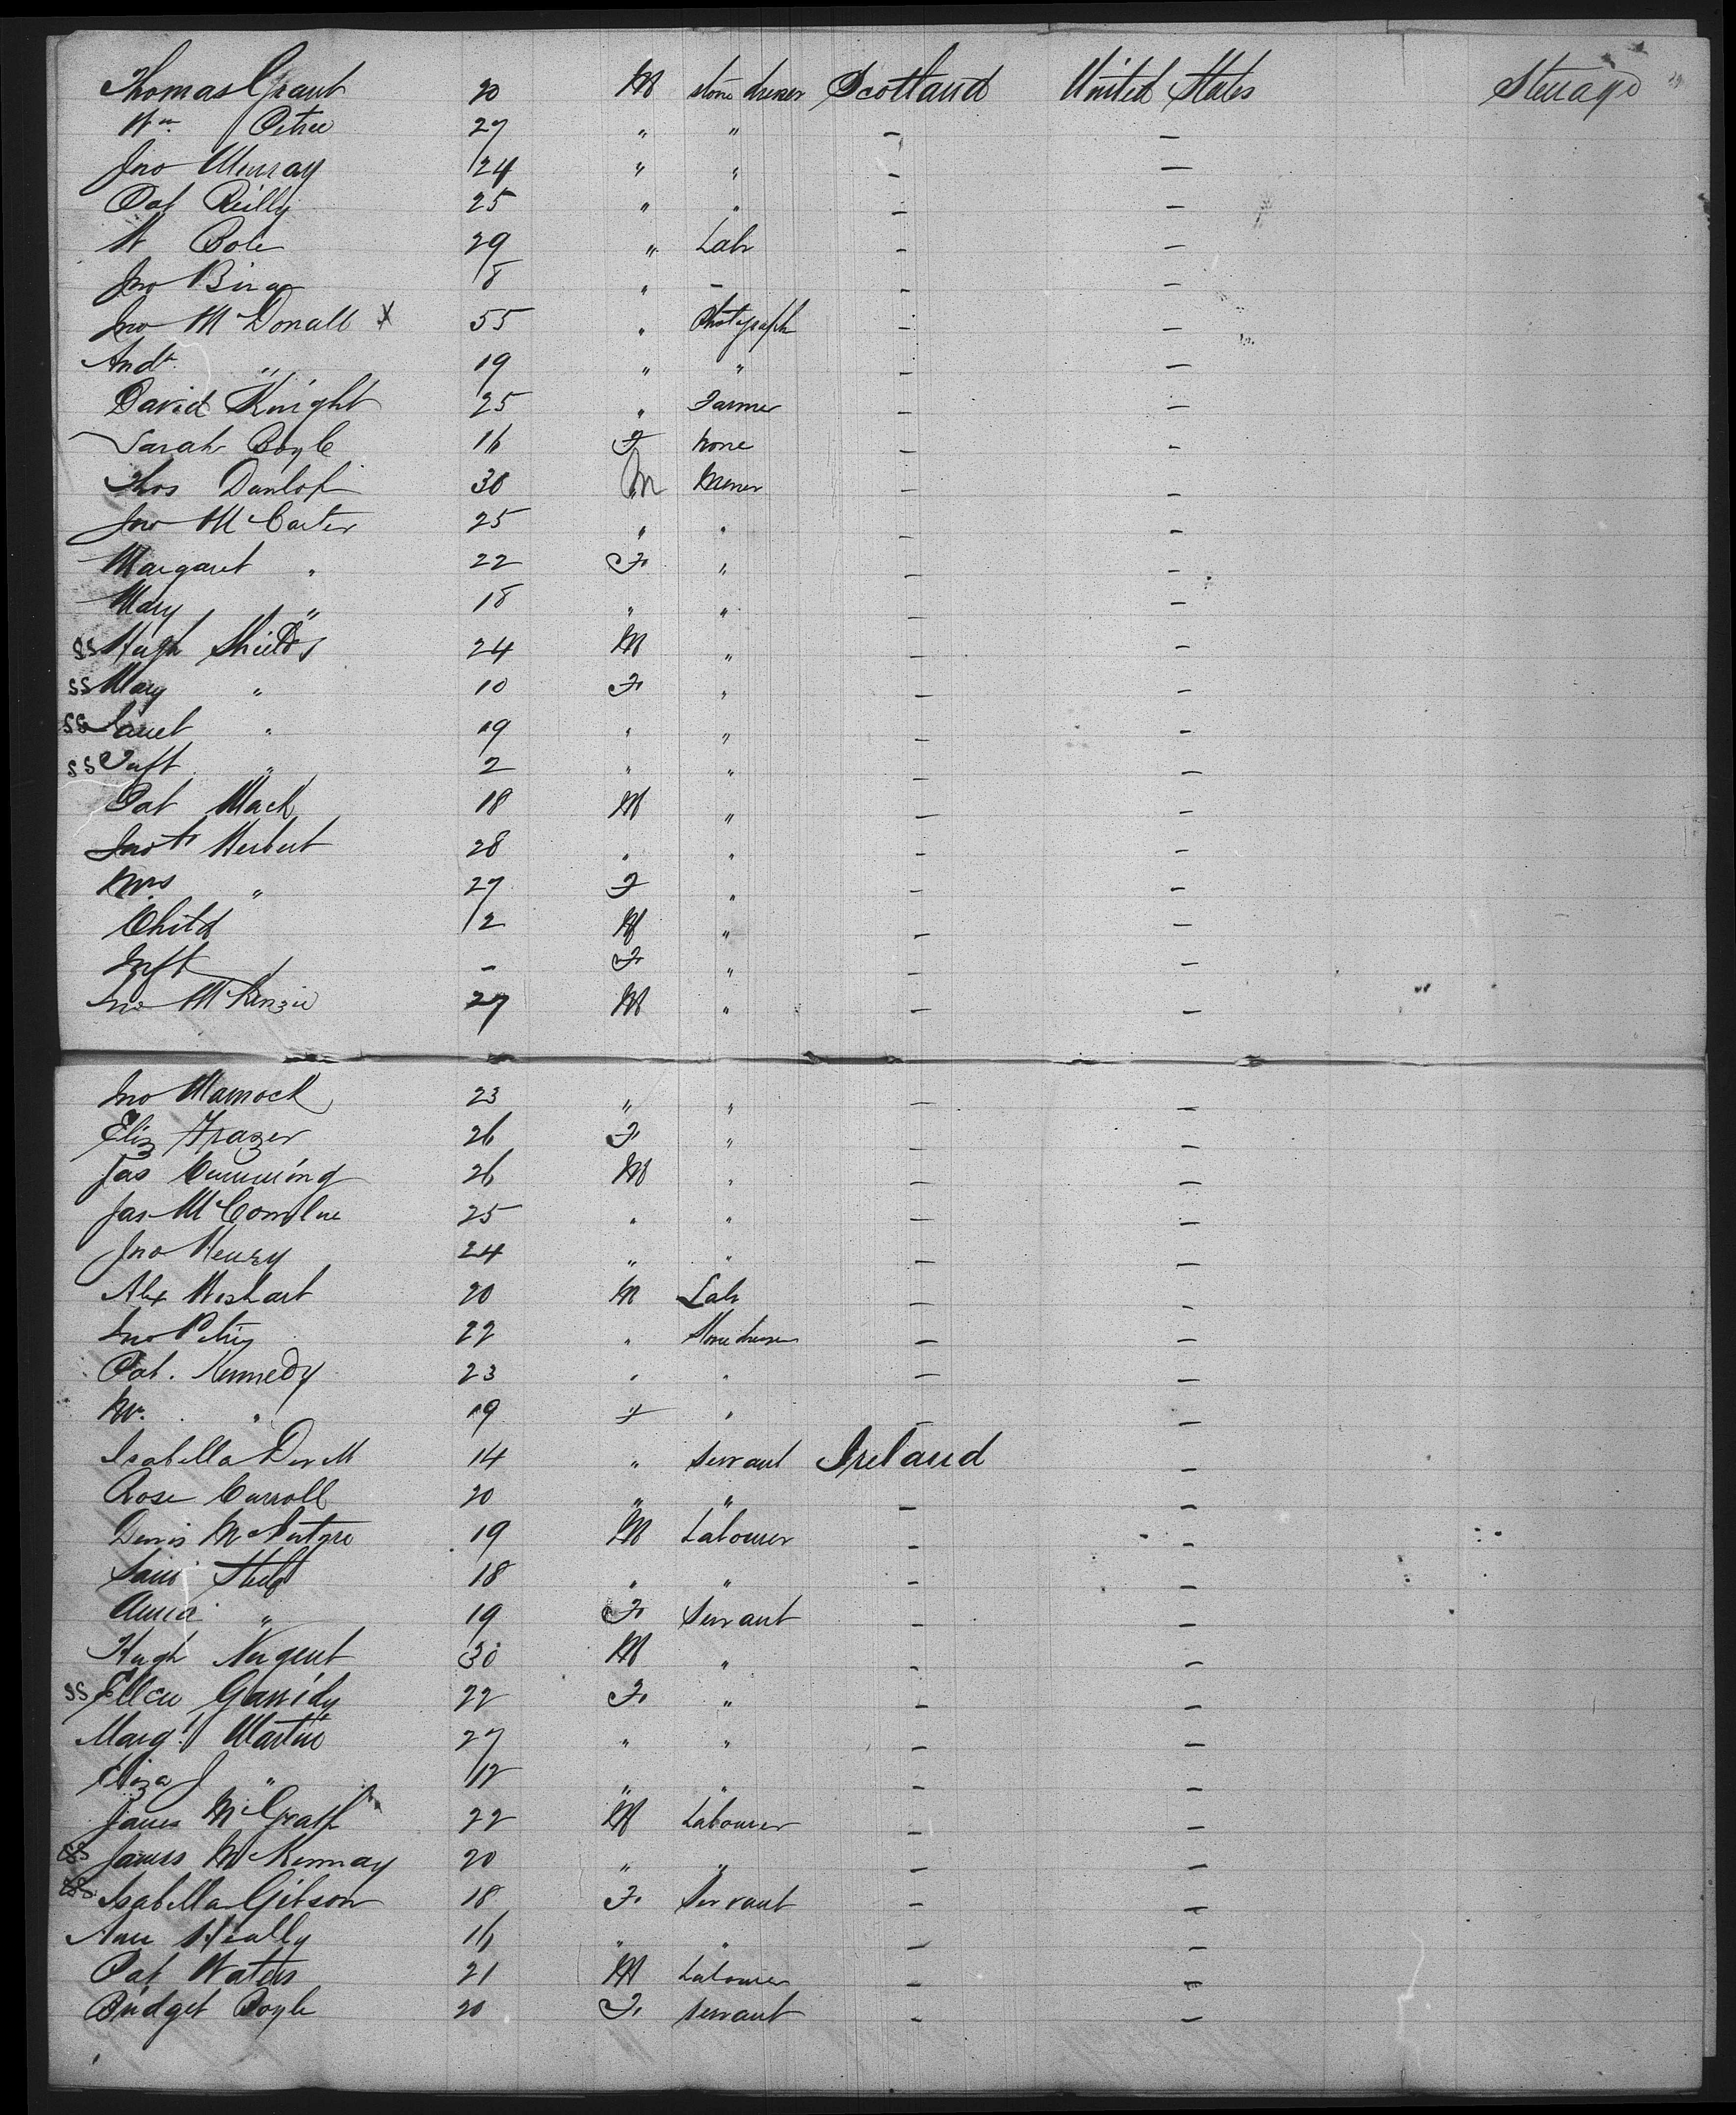 Thomas Grant 20 M Stone dresser Scotland United States Steerage
Wm Petrie 27 " " - -
Jno Murray 24 " " - -
Pat Reilly 25 " " - -
W Bole 29 " Labr - -
Jno 18 " - - -
Jno McDonall X 55 " Photograph - -
Andw " 19 " " - -
David Knight 25 " Farmer - -
Sarah Boyle 16 F none - -
Thos Dunlop 30 M Miner - -
Jno McCarter 25 " " - -
Margaret " 22 F " - -
Mary " 18 " " - -
SS Hugh Shields 24 M " - -
SS Mary " 10 F " - -
SS Janet " 19 " " - -
SS Inft " 2 " " - -
Pat Mack 18 M " - -
Jno Herbert 28 " " - -
Mrs " 27 F " - -
Child 12 M " - -
Inft - F " - -
Jno McKenzie 27 M " - -
Jno 23 " " - -
Eliz Frazer 26 F " - -
Jas Cumming 26 M " - -
Jas 25 " " - -
Jno Henry 24 " " - -
Alex Wishart 20 M Labr - -
Jno Petrie 22 " Stone dresser - -
Pat. Kennedy 23 " " - -
" 19 F " - -
Isabella 14 " Servant Ireland -
Rose Carroll 20 " " - -
Denis McIntyre 19 M Labourer - -
18 " " - -
" 19 F Servant - -
Hugh Nugent 30 M " - -
SS Ellen 22 F " - -
Margt Martin 27 " " - -
Eliza J " 12 " " - -
James McGrath 22 M Labourer - -
SS James McKennay 20 " " - -
SS Isabella Gibson 18 F Servant - -
Ann Heally 16 " " - -
Pat Waters 21 M Labourer - -
Bridget Boyle 20 F Servant - -